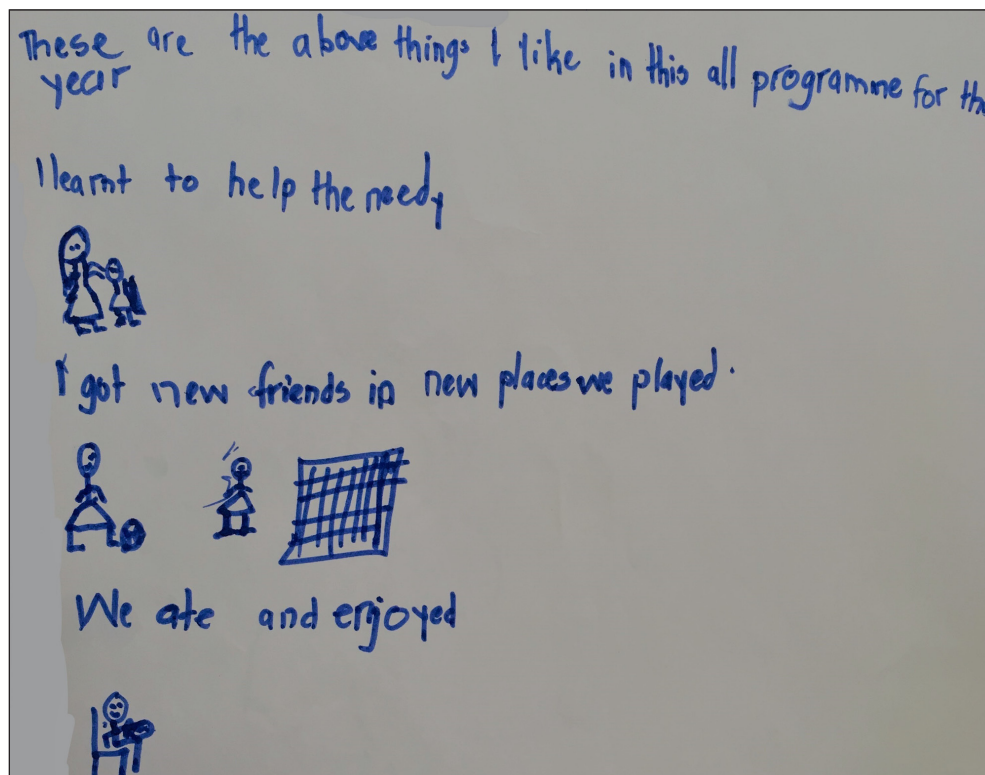 These are the above things I like in this all programme for the
year
I learnt to help the needy
I got new friends in new places we played.
We ate and enjoyed